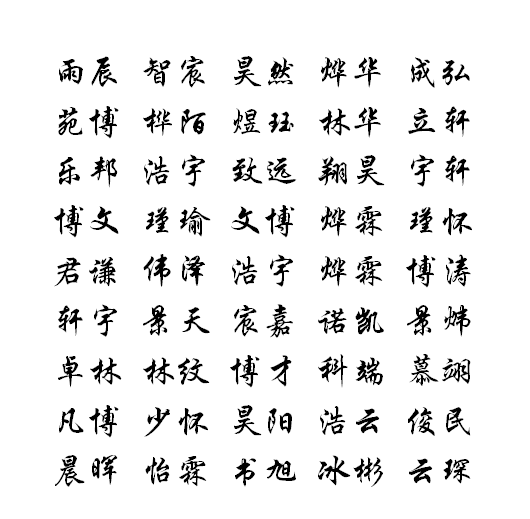 雨辰 智宸 昊然 烨华 成弘
苑博 桦陌 煜珏 林华 立轩
乐邦 浩宇 致远 翔昊 宇轩
博文 瑾瑜 文博 烨霖 瑾怀
君谦 伟泽 浩宇 烨霖 博涛
轩宇 景天 宸嘉 诺凯 景炜
卓林 林纹 博才 科端 慕翊
凡博 少怀 昊阳 浩云 俊民
晨晖 怡霖 书旭 冰彬 云琛